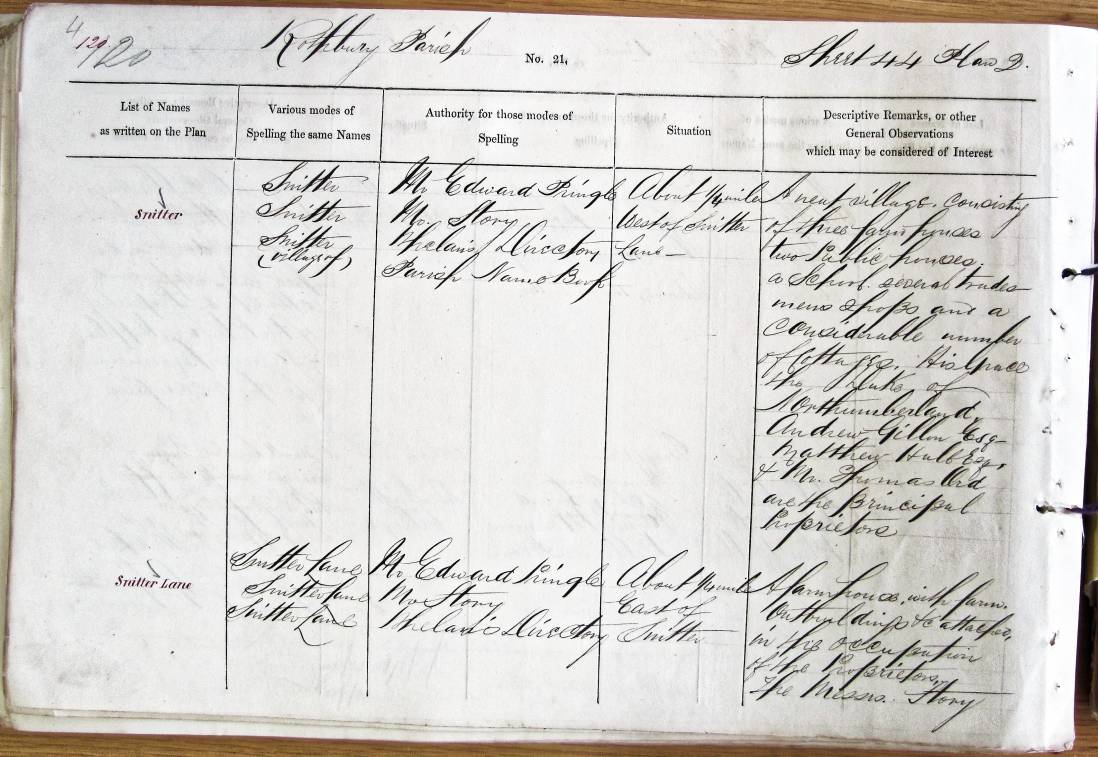 4
120
120
Rothbury Parish No. 21. Sheet 44 Plan 2.
List of Names
as written on the Plan
Various modes of
Spelling the same Names
Authority for those modes of
Spelling
Situation
Descriptive Remarks, or other
General Observations
which may be considered of Interest
Snitter
Snitter
Snitter
Snitter
(village of)
Mr Edward Pringle
Mr. Story
Whelan's Directory
Parish Name Book
About 1/4 mile
West of Snitter
Lane
A neat village, consisting
of three farm houses
two Public houses,
a School, several trades
mens shops and a
considerable number
of cottages. His Grace
the Duke of
Northumberland,
Andrew Gillon Esq
Matthew Hall Esq,
& Mr. Thomas Ord
are the principal
Proprietors
Snitter Lane
Snitter Lane
Snitter Lane
Snitter Lane
Mr Edward Pringle
Mr Story
Whelan's Directory
About 1/4 mile
East of
Snitter
A farmhouse, with farm
Outbuildings &c attached,
in the occupation
of the Proprietors,
The Messrs. Story